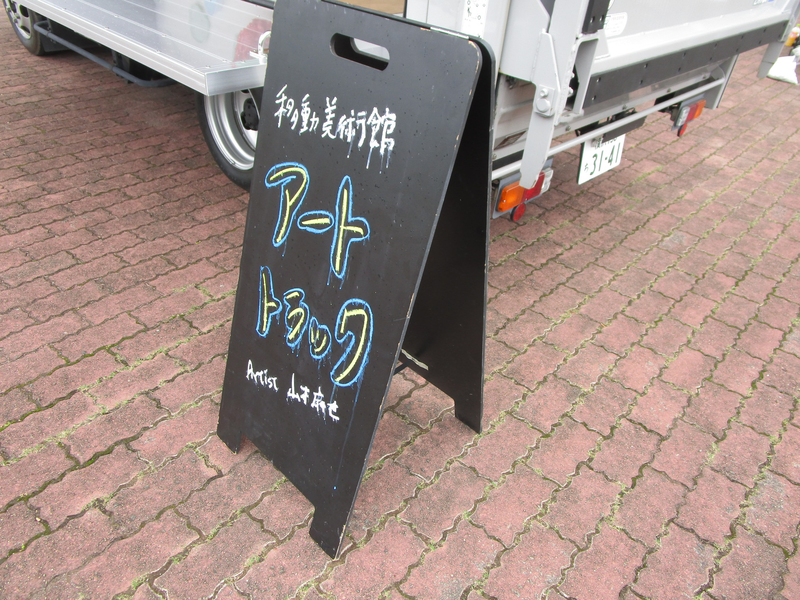 移動美術館
アート
トラック
Artist
31-41